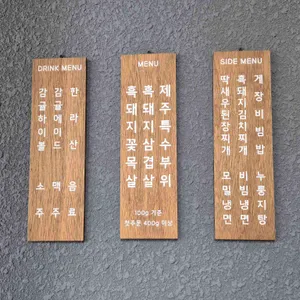 DRINK MENU
감귤하이볼
감귤에이드
한라산
소주
맥주
음료
MENU
흑돼지꽃목살
흑돼지삼겹살
제주특수부위
100g 기준
첫주문 400g 이상
SIDE MENU
딱새우된장찌개
흑돼지김치찌개
게장비빔밥
모밀냉면
비빔냉면
누룽지탕